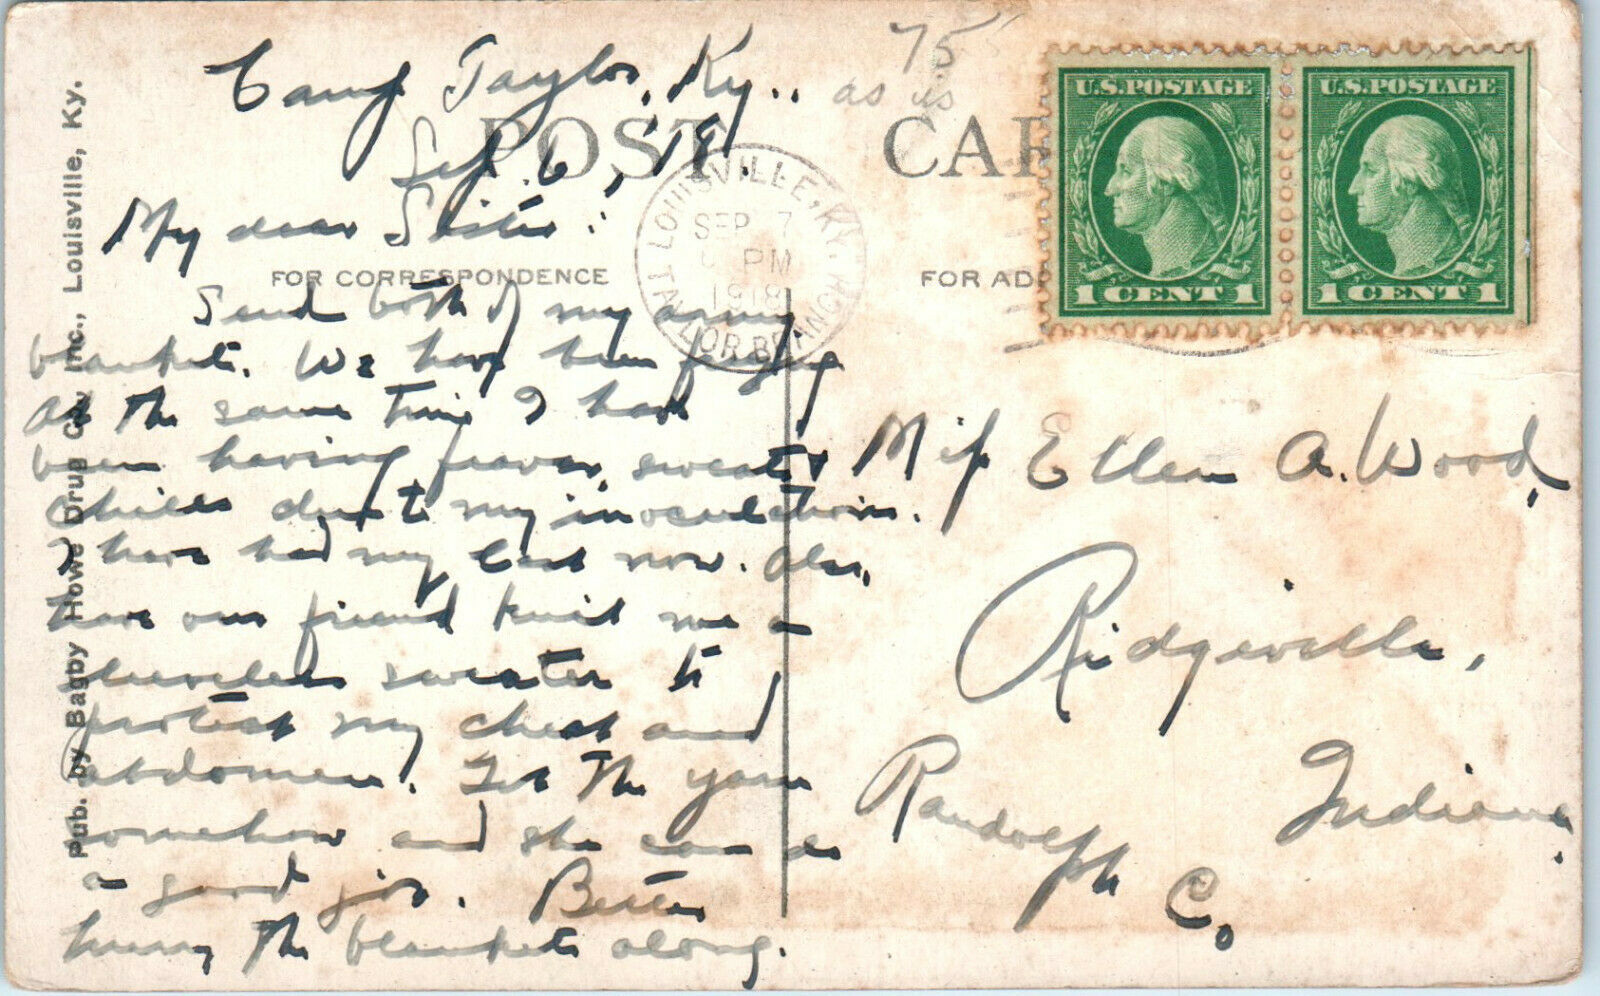 75
as is
Camp Taylor, Ky..
Sep. 6, '18.
POST CAR
LOUISVILLE, KY.
TAYLOR BRANCH
SEP 7
PM
1918
U.S.POSTAGE
1 CENT 1
U.S.POSTAGE
1 CENT 1
FOR CORRESPONDENCE
FOR ADD
My dear Sister:
Send both of my army
blankets. We have been freezing
At the same time I have
been having fevers, sweats &
chills due to my inoculations.
I have had my last now. Also,
have our friend knit me a
sleeveless sweater to
protect my chest and
abdomen. Get the yarn
somehow and she can do
a good job. Better
hurry the blankets along.
Miss Ellen A. Wood,
Ridgeville,
Randolph Co.
Indiana.
Pub. by Bagby Howe Drug Co., Inc., Louisville, Ky.